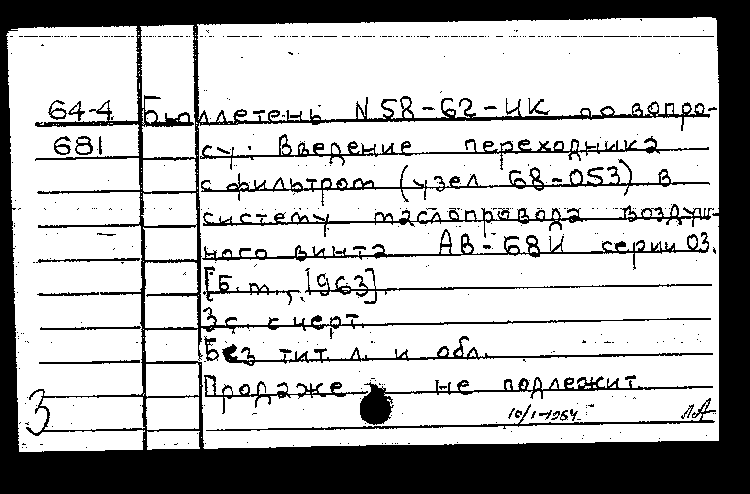 64-4 Бюллетень N 58-62-ИК по вопро-
681 су: Введение переходника
с фильтром (узел 68-053) в
систему маслопровода воздуш-
ного винта АВ-68И серии 03.
[Б.м., 1963].
3 с. с черт.
Без тит. л. и обл.
Продаже не подлежит
3 10/I-1964 ЛА